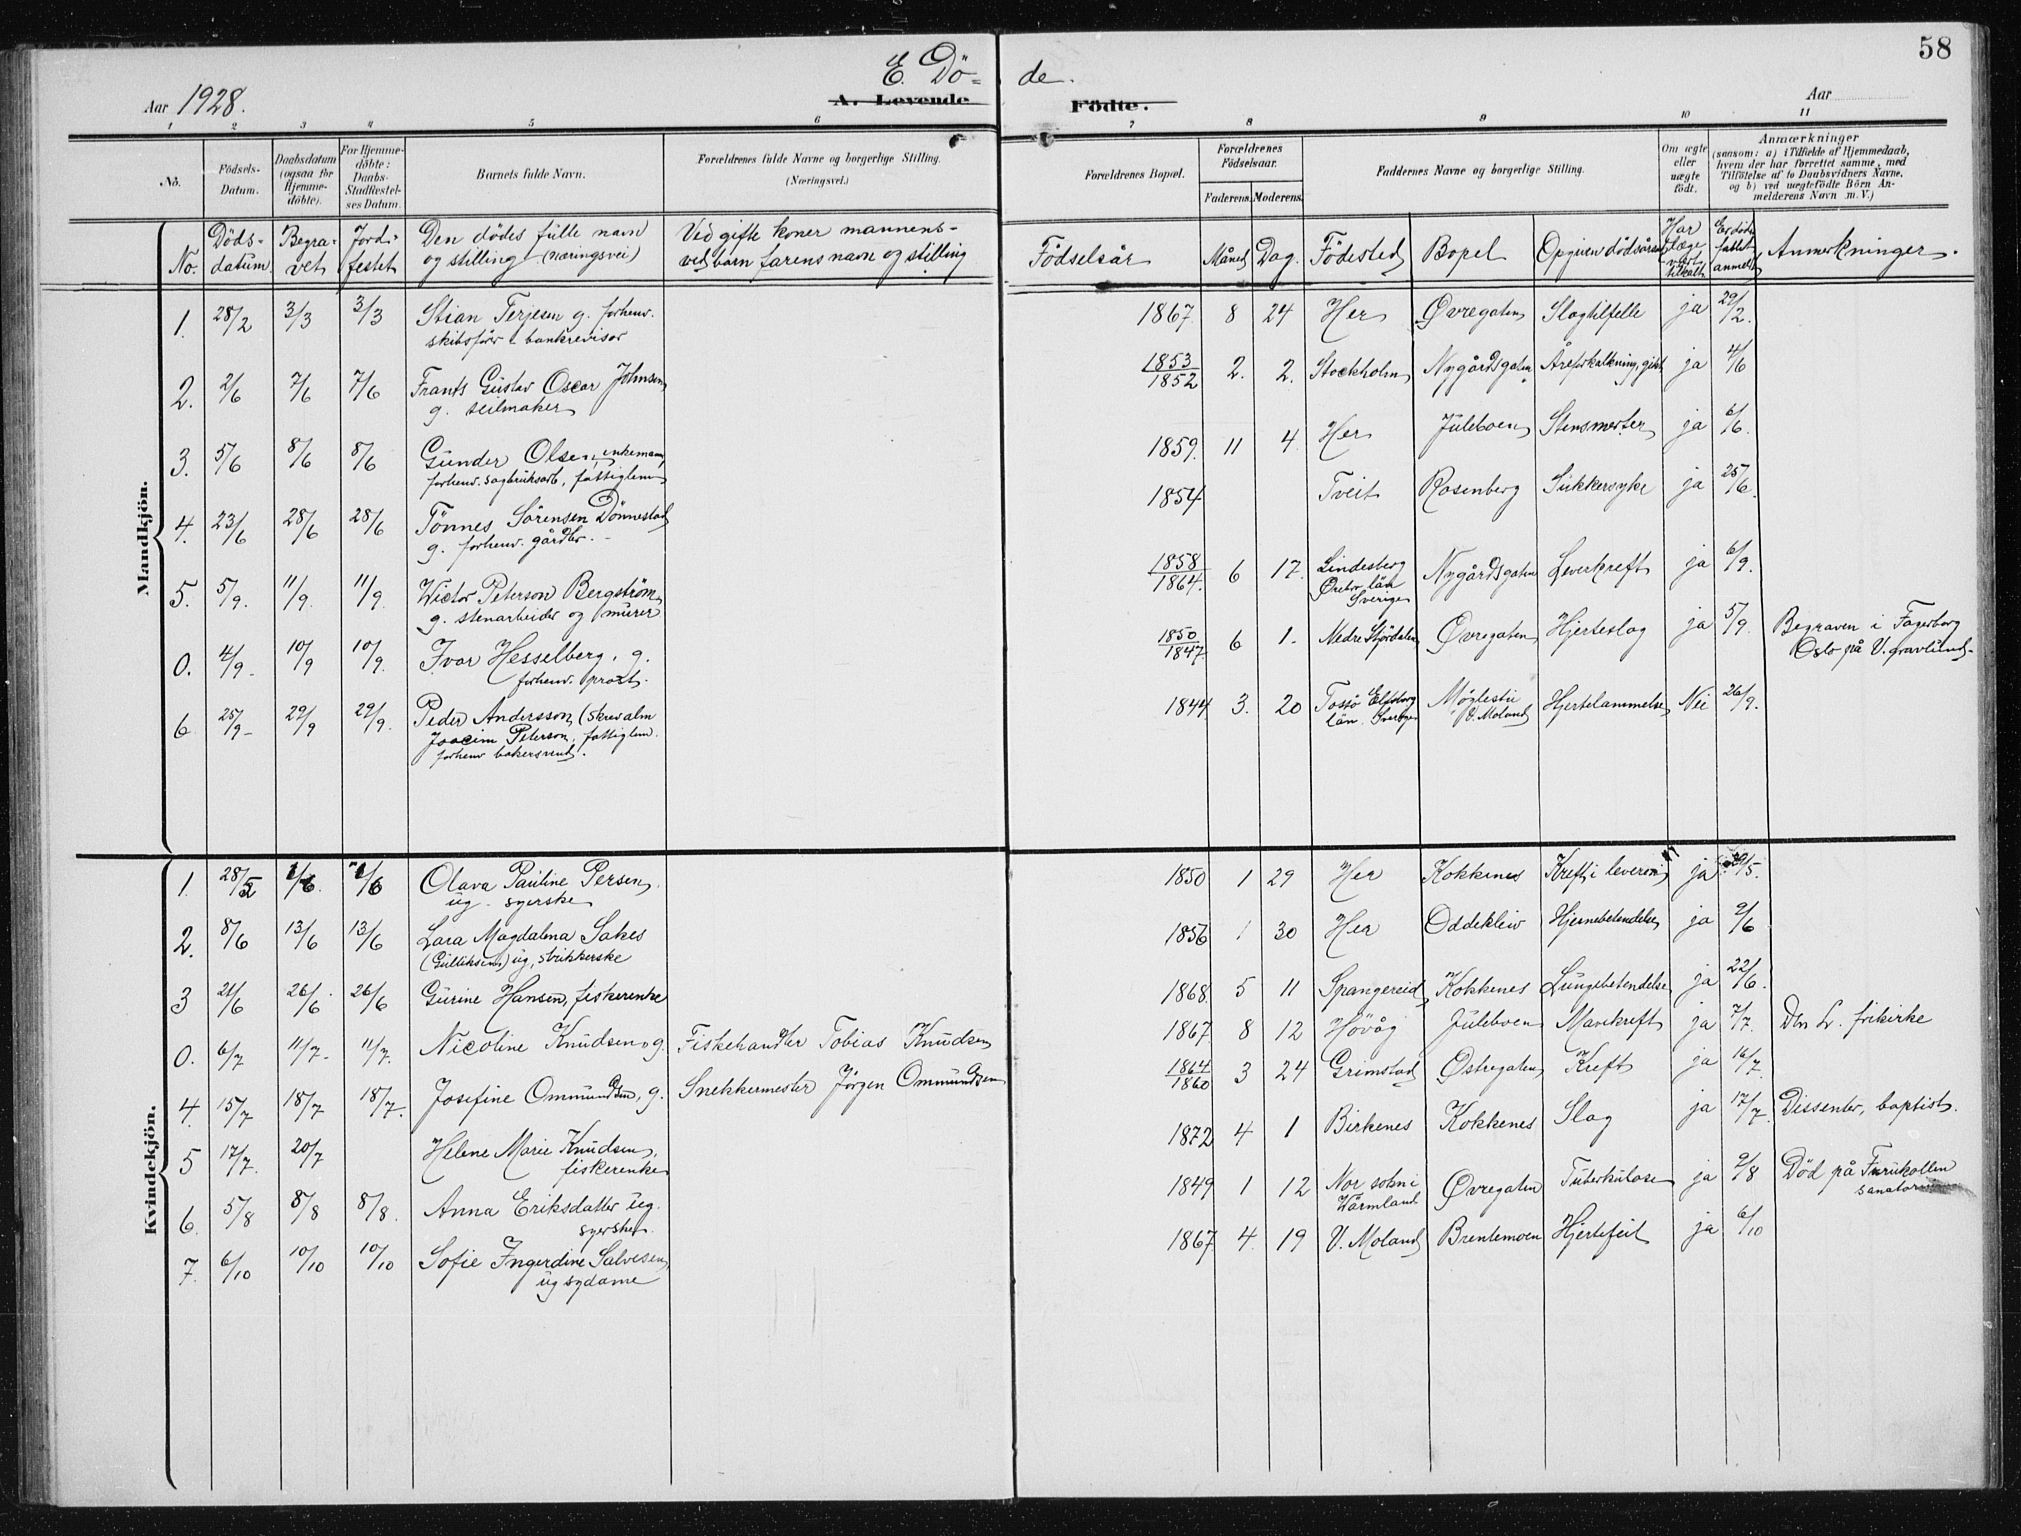 58
E. Dö- de.
Aar 1928.
A. Levende Födte.
Aar
1 2 3 4 5 6 7 8 9 10 11
No.
Födsels-Datum.
Daabsdatum (ogsaa for Hjemme-döbte).
For Hjemme-döbte: Daabs-Stadfæstel-ses Datum.
Barnets fulde Navn.
Forældrenes fulde Navne og borgerlige Stilling.
(Næringsvei.)
Forældrenes Bopæl.
Forældrenes Födselsaar.
Faderens. Moderens.
Faddernes Navne og borgerlige Stilling.
Om ægte eller uægte födt.
Anmærkninger
(saasom: a) i Tilfælde af Hjemmedaab, hvem der har forrettet samme, med Tilföielse af to Daabsvidners Navne, og b) ved uægtefödte Börn An-melderens Navn m. V.)
No. Döds-datum. Begra-vet Jord-festet Den dödes fulle navn og stilling (næringsvei) Ved gifte koner mannens- ved barn farens navn og stilling Födselsår Måned Dag. Födested Bopel Opgiven dödsårsak Har læge vært tilkalt Er döds-fallet anmeldt Anmerkninger.
Mandkjön.
1. 28/2 3/3 3/3 Stian Terjesen g. forhenv. skibsförer & bankrevisor 1867. 8 24 Her Øvregaten Slagtilfelle ja 29/2.
2. 2/6 7/6 7/6 Frants Gustav Oscar Johnsen g. seilmaker 1853/1852 2. 2. Stockholm Nygårdsgaten Åreforkalkning, gikt ja 4/6
3. 5/6 8/6 8/6 Gunder Olsen, enkemann, forhenv. sagbruksarb, fattiglem 1859. 11 4. Her Juleboen Stensmerter ja 6/6.
4. 23/6 28/6 28/6 Tönnes Sörensen Dönnestad g. forhenv. gårdbr. 1854 Tveit Rosenberg Sukkersyke ja 25/6.
5. 5/9. 11/9. 11/9. Wictor Peterson Bergström g. stenarbeider og murer 1858/1864. 6 17. Lindesberg Örebro län Sverige Nygårdsgaten Leverkreft ja 6/9.
0. 4/9- 10/9 10/9. Ivar Hesselberg, g. forhenv. prost. 1850/1847. 6 1. Nedre Stjördalen Øvregaten Hjerteslag ja 5/9. Begraven i Fagerborg Oslo på V. gravlund.
6 25/9- 29/9 29/9. Peder Andersson (skrev alm Joacim Peterson, fattiglem. forhenv bakersvend. 1844 3. 20 Tossö Elfsborg län. Sverige Möglestu V. Moland Hjertelammelse Nei 26/9.
Kvindekjön.
1. 28/5 1/6 1/6 Olava Pauline Persen, ug. syerske 1850 1 29 Her Kokkenes Kreft i leveren ja 29/5.
2. 8/6 13/6 13/6 Lara Magdalena Sakes (Gulliksen) ug, strikkerske 1856 1 30 Her Oddekleiv Hjernebetendelse ja 9/6
3 21/6 26/6 26/6 Gurine Hansen, fiskerenke 1868. 5 11 Spangereid Kokkenes Lungebetendelse ja 22/6.
0. 6/7 11/7- 11/7. Nicoline Knudsen, g. Fiskehandler Tobias Knudsen 1867 8 12 Hövåg Juleboen Mavekreft ja 7/7. Den L. frikirke
4. 15/7 18/7 18/7. Josefine Ommundsen, g. Snekkermester Jörgen Ommundsen 1864/1860 3 24 Grimstad Østregaten Kreft ja 16/7.
5 17/7. 20/7 Helene Marie Knudsen, fiskerenke 1872 4 1 Birkenes Kokkenes Slag ja 17/7. Dissenter, baptist.
6. 5/8 8/8 8/8. Anna Eriksdatter ug. syerske. 1849 1 12 Nor sokn i Wärmland Øvregaten Tuberkulose ja 9/8 Död på Furukollen sanatorium
7. 6/10 10/10 10/10 Sofie Ingerdine Salvesen, ug sydame 1867 4. 19 V. Moland Brentemoen Hjertefeil ja 6/10